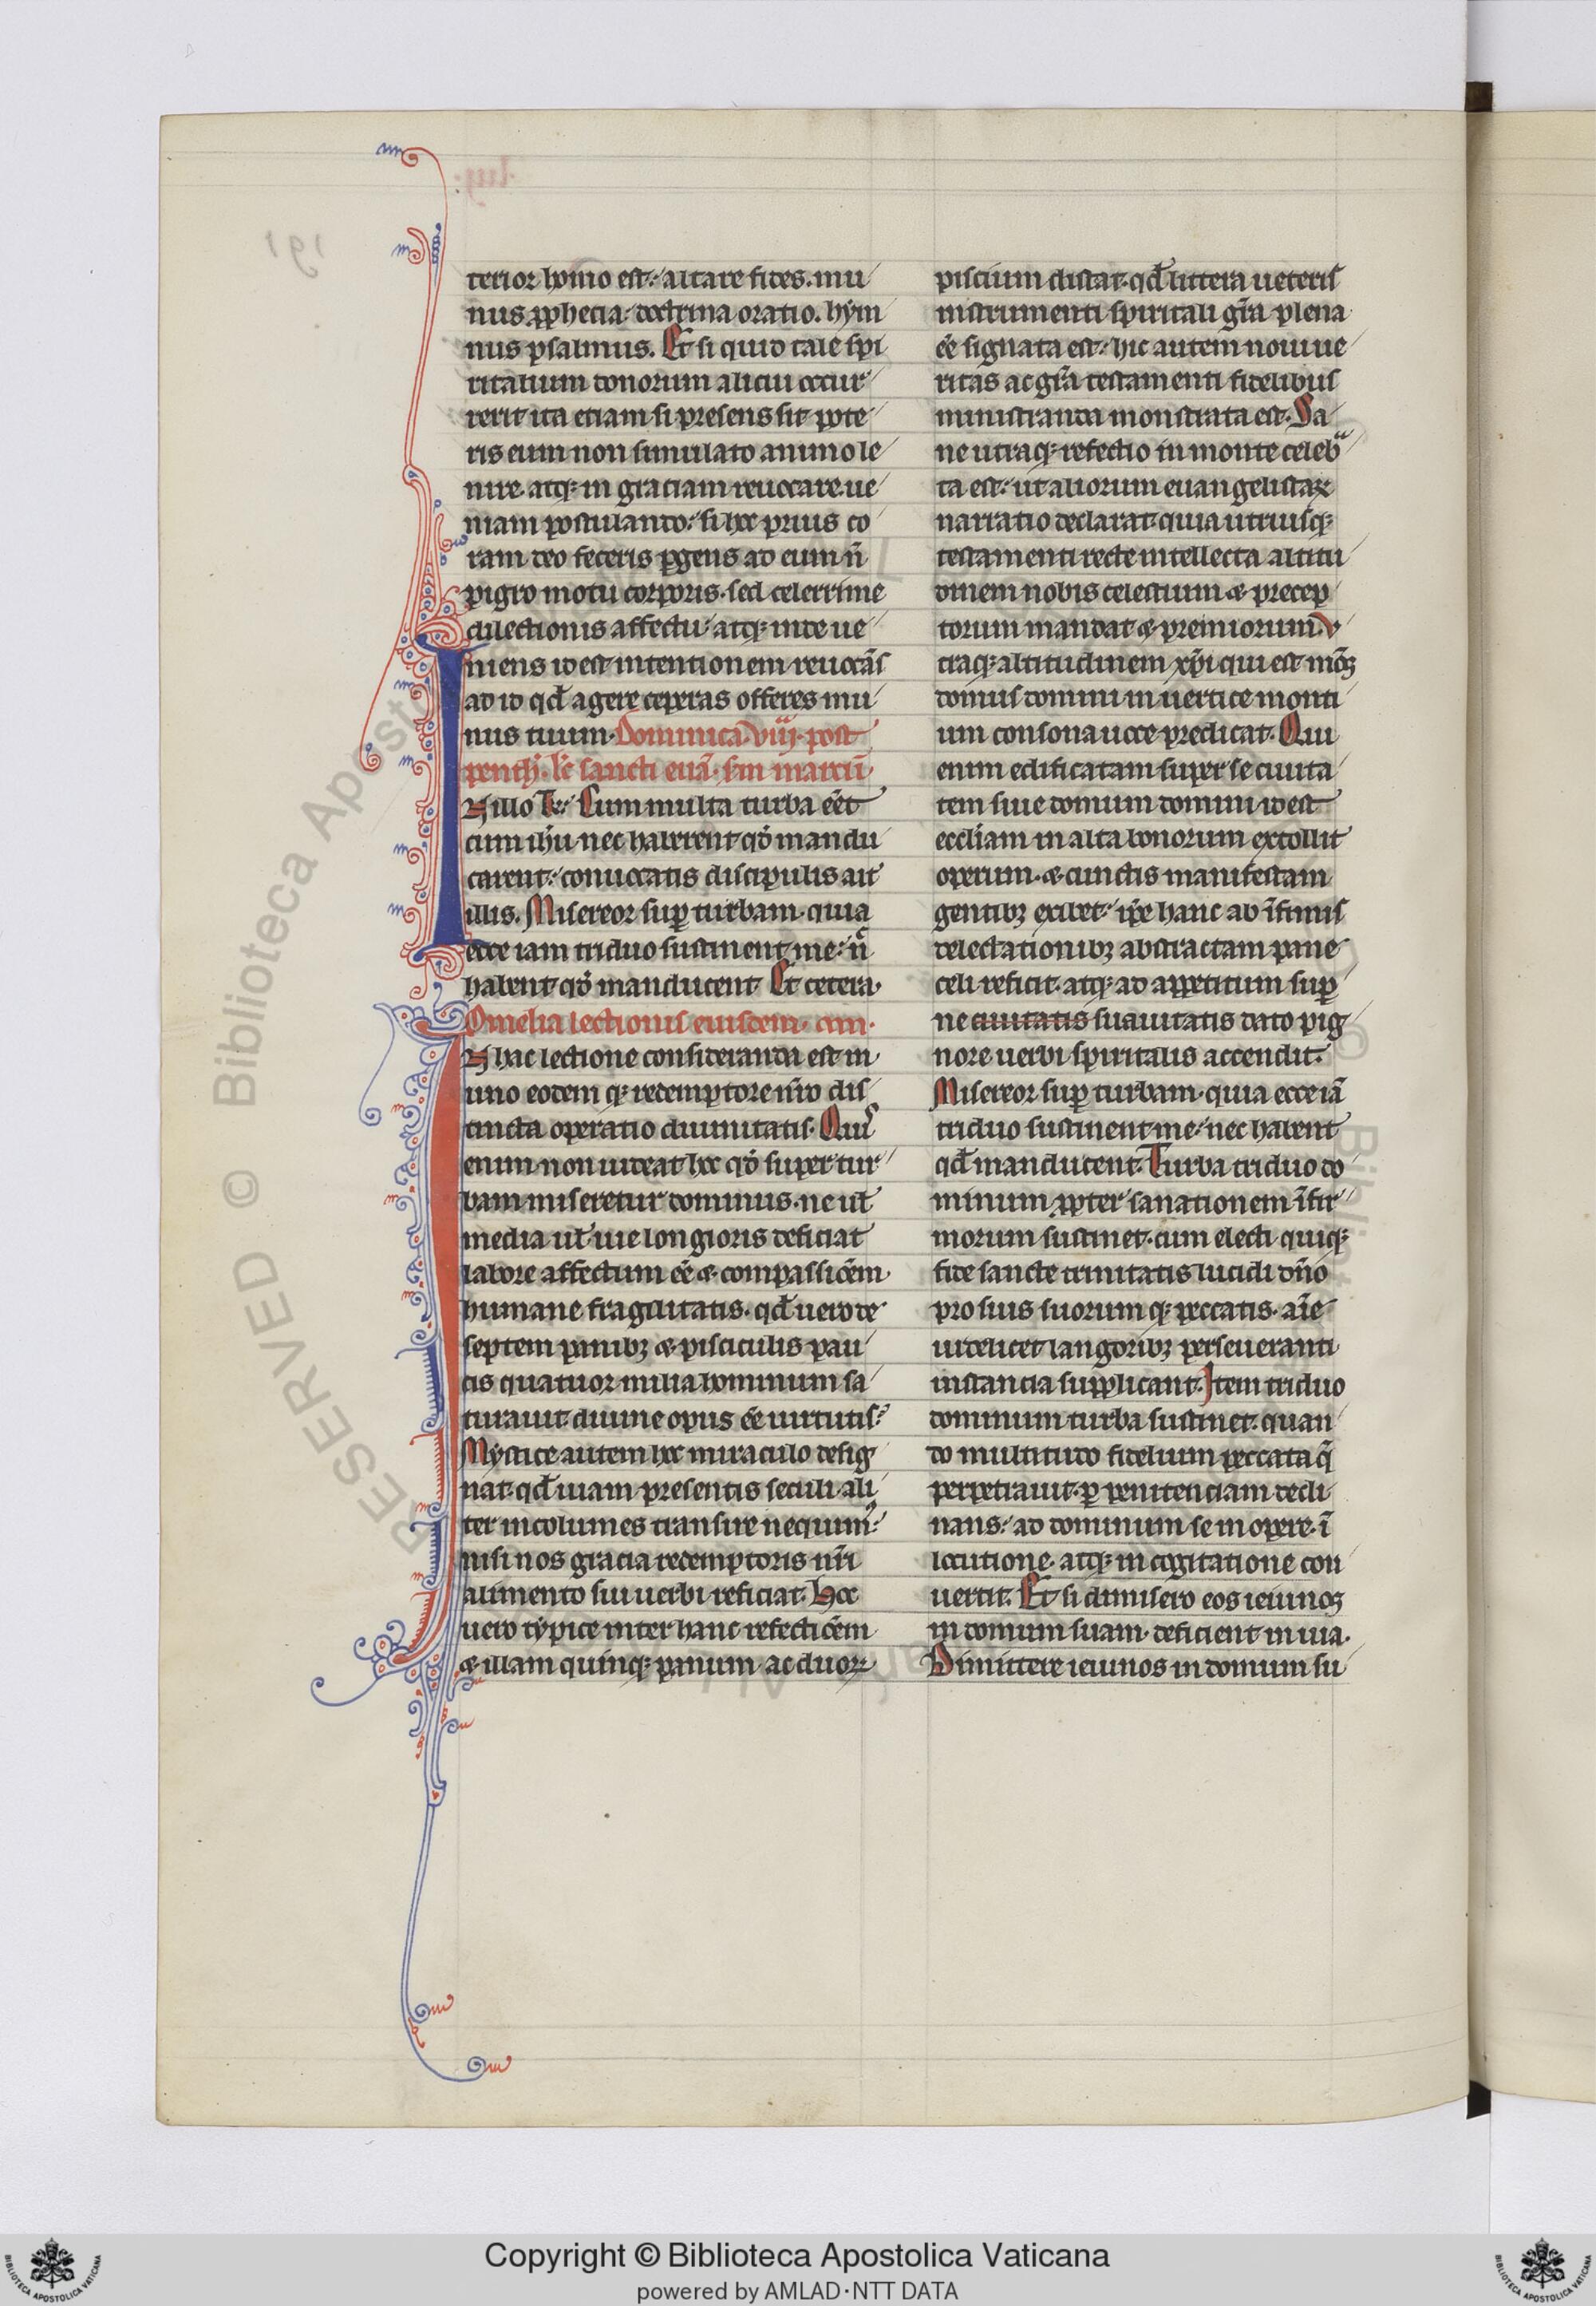 terior homo est: altare fides. mu
nus ꝓphetia doctrina oratio. hym
nus psalmus. Et si quid tale spi
ritalium donorum alicui occur
rerit ita etiam si presens sit pote
ris eum non simulato animo le
nire. atq; in graciam reuocare. ue
niam postulando: si hoc prius co
ram deo feceris ꝑgens ad eum n̄
pigro motu corporis. sed celerrime
dilectionis affectu atq; inde ue
niens id est intentionem reuocās
ad id qd̄ agere ceperas offeres mu
nus tuum. Dominica viii. post
penth̄. lc̄ sancti euā. sm̄ marcū.
In illo T̄. Cum multa turba eēt
cum ih̄u nec haberent qd̄ mandu
carent: conuocatis discipulis ait
illis. Misereor suꝑ turbam. quia
ecce iam triduo sustinent me: n̄
habent qd̄ manducent. Et cetera.
Omelia lectionis eiusdem.
In hac lectione consideranda est in
uno eodem q; redemptore nr̄o dis
tincta operatio diuinitatis. Quis
enim non uideat hoc qd̄ super tur
bam miseretur dominus. ne ul̄
media ul̄ uie longioris deficiat
labore affectum eē & compassiōem
humane fragilitatis. qd̄ uero de
septem panibꝫ & pisciculis pau
cis quatuor milia hominum sa
turauit diuine opus eē uirtutis:
Mystice autem hoc miraculo desig
nat. qd̄ uiam presentis seculi ali
ter incolumes transire nequim;
nisi nos gracia redemptoris nr̄i
alimento sui uerbi reficiat. Hoc
uero typice inter hanc refectiōem
& illam quinq; panum ac duoꝝ
piscium distat. qd̄ littera ueteris
instrumenti spiritali gr̄a plena
eē signata est: hic autem noui ue
ritas ac gr̄a testamenti fidelibus
ministranda monstrata est. Sa
ne utraq; refectio in monte celebra
ta est: ut aliorum euangelistaꝝ
narratio declarat. quia utriusq;
testamenti recte intellecta altitu
dinem nobis celestium & precep
torum mandat & premiorum. V
traq; altitudinem xp̄i qui est mōs
domus domini in uertice monti
um consona uoce predicat. Qui
enim edificatam super se ciuita
tem siue domum domini id est
eccl̄iam in alta bonorum extollit
operum. & cunctis manifestam
gentibꝫ exibet: ip̄e hanc ab īfimis
delectationibꝫ abstractam pane
celi reficit. atq; ad appetitum suꝑ
ne ciuitatis suauitatis dato pig
nore uerbi spiritalis accendit.
Misereor suꝑ turbam. quia ecce iā
triduo sustinent me. nec habent
qd̄ manducent. Turba triduo do
minum ꝓpter sanationem īfir
morum sustinet. cum electi quiq;
fide sancte trinitatis lucidi dn̄o
pro suis suorum q; peccatis. aīe
uidelicet langoribꝫ perseueranti
instancia supplicant. Item triduo
dominum turba sustinet. quan
do multitudo fidelium peccata q̄
perpetrauit. ꝑ penitenciam decli
nans: ad dominum se in opere. ī
locutione. atq; in cogitatione con
uertit. Et si dimisero eos ieiunos
in domum suam. deficient in uia.
Dimittere ieiunos in domum su
RESERVED © Biblioteca Aposto
Copyright © Biblioteca Apostolica Vaticana
powered by AMLAD·NTT DATA